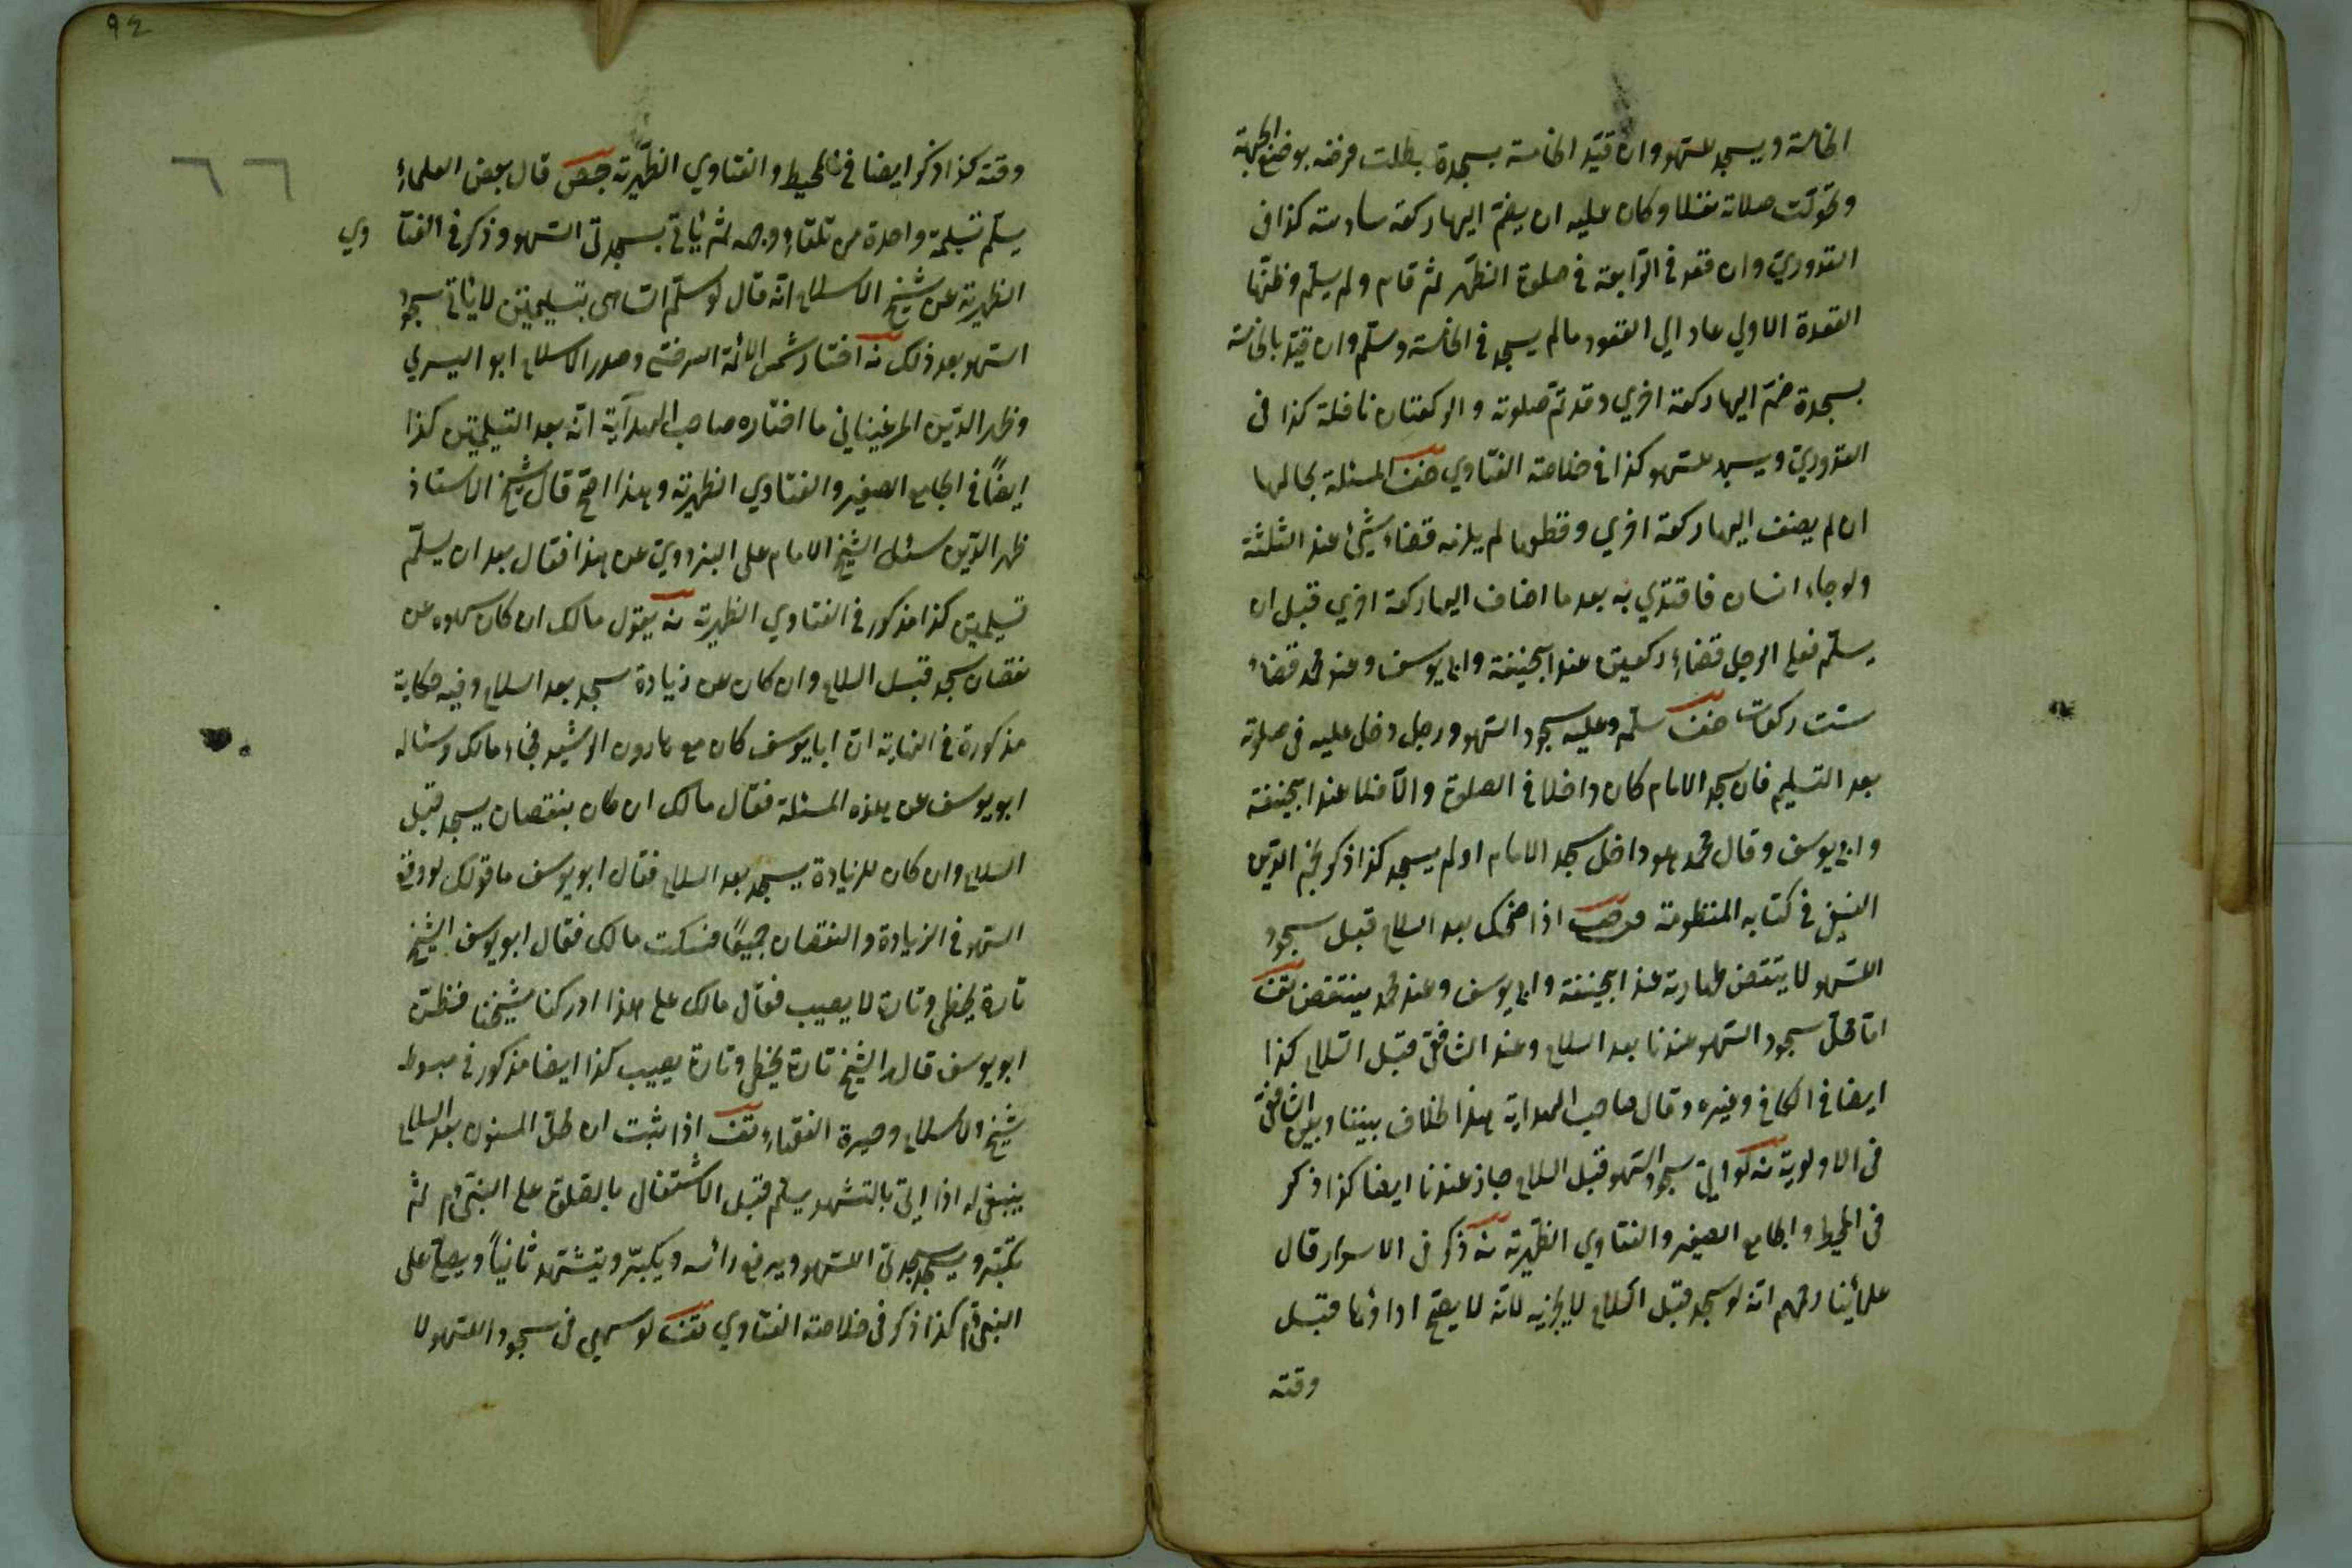 الخامسة ويسجد للسهو وان قيد الخامسة بسجدة بطلت فرضه بوضع الجبهة
وتحولت صلاته نفلا وكان عليه ان يضم اليها ركعة سادسة كذا فى
القدوري وان قعد فى الرابعة فى صلوة الظهر ثم قام ولم يسلم وظنها
القعدة الاولي عاد الي القعود مالم يسجد فى الخامسة وسلم وان قيد بالخامسة
بسجدة ضم اليها ركعة اخري وقد تم صلوته والركعتان نافلة كذا فى
القدوري ويسجد للسهو كذا فى خلاصة الفتاوي المسئلة بحالها
ان لم يضف اليها ركعة اخري وقطعها لم يلزمه قضاء شيئ عند الثلثة
ولو جاء انسان فاقتدي به بعد ما اضاف اليها ركعة اخري قبل ان
يسلم فعلى الرجل قضاء ركعتين عند ابيحنيفة وابي يوسف وعند محمد قضاء
ست ركعات سلم وعليه سجود السهو ورجل دخل عليه فى صلوته
بعد التسليم فان سجد الامام كان داخلا فى الصلوة والا فلا عند ابيحنيفة
وابي يوسف وقال محمد هو داخل سجد الامام او لم يسجد كذا ذكر نجم الدين
النسفي فى كتابه المنظومة اذا ضحك بعد السلام قبل سجود
السهو لا ينتقض طهارته عند ابيحنيفة وابي يوسف وعند محمد ينتقض
اما محل سجود السهو عندنا بعد السلام وعند الشافعي قبل السلام كذا
ايضا فى الكافي وغيره وقال صاحب الهداية هذا الخلاف بيننا وبين الشافعي
فى الاولوية لو اتى سجود السهو قبل السلام جاز عندنا ايضا كذا ذكر
فى المحيط والجامع الصغير والفتاوي الظهيرية ذكر فى الاسرار قال
علمائنا رحمهم انه لو سجد قبل السلام لا يجزيه لانه لا يصح اداؤها قبل
وقته
٩٤
٦٦
وقته كذا ذكر ايضا فى المحيط والفتاوي الظهيرية قال بعض العلماء
يسلم تسليمة واحدة من تلقاء وجهه ثم يأتى بسجدتى السهو وذكر فى الفتا وي
الظهيرية عن شيخ الاسلام انه قال لو سلم الساهى بتسليمتين لا يأتى سجود
السهو بعد ذلك اختار شمس الائمة السرخسي وصدر الاسلام ابو اليسري
وظهر الدين المرغيناني ما اختاره صاحب الهدآية انه بعد التسليمتين كذا
ايضاً فى الجامع الصغير والفتاوي الظهيرية وهذا اصح قال شيخ الاستاذ
ظهر الدين سئل الشيخ الامام على البزدوي عن هذا فقال بعد ان يسلم
تسليمتين كذا مذكور فى الفتاوي الظهيرية يقول مالك ان كان سهوه عن
نقصان سجد قبل السلام وان كان عن زيادة سجد بعد السلام وفيه حكاية
مذكورة فى النهاية ان ابا يوسف كان مع هارون الرشيد فجاء مالك وساله
ابو يوسف عن هذه المسئلة فقال مالك ان كان بنقصان يسجد قبل
السلام وان كان للزيادة يسجد بعد السلام فقال ابو يوسف ما قولك لو وقع
السهو فى الزيادة والنقصان جميعًا فسكت مالك فقال ابو يوسف الشيخ
تارة يخطى وتارة لا يصيب فقال مالك على هذا ادركنا شيخنا فظن
ابو يوسف قال الشيخ تارة يخطى وتارة يصيب كذا ايضا مذكور فى مبسوط
شيخ الاسلام وحيرة الفقهاء اذا ثبت ان محل المسنون بعد السلام
ينبغى له اذا اتى بالتشهد يسلم قبل الاشتغال بالصلوة على النبى م ثم
يكبر ويسجد سجدتى السهو ويرفع رأسه ويكبر ويتشهد ثانياً ويصلى على
النبى م كذا ذكر فى خلاصة الفتاوي لو سهى فى سجود السهو لا